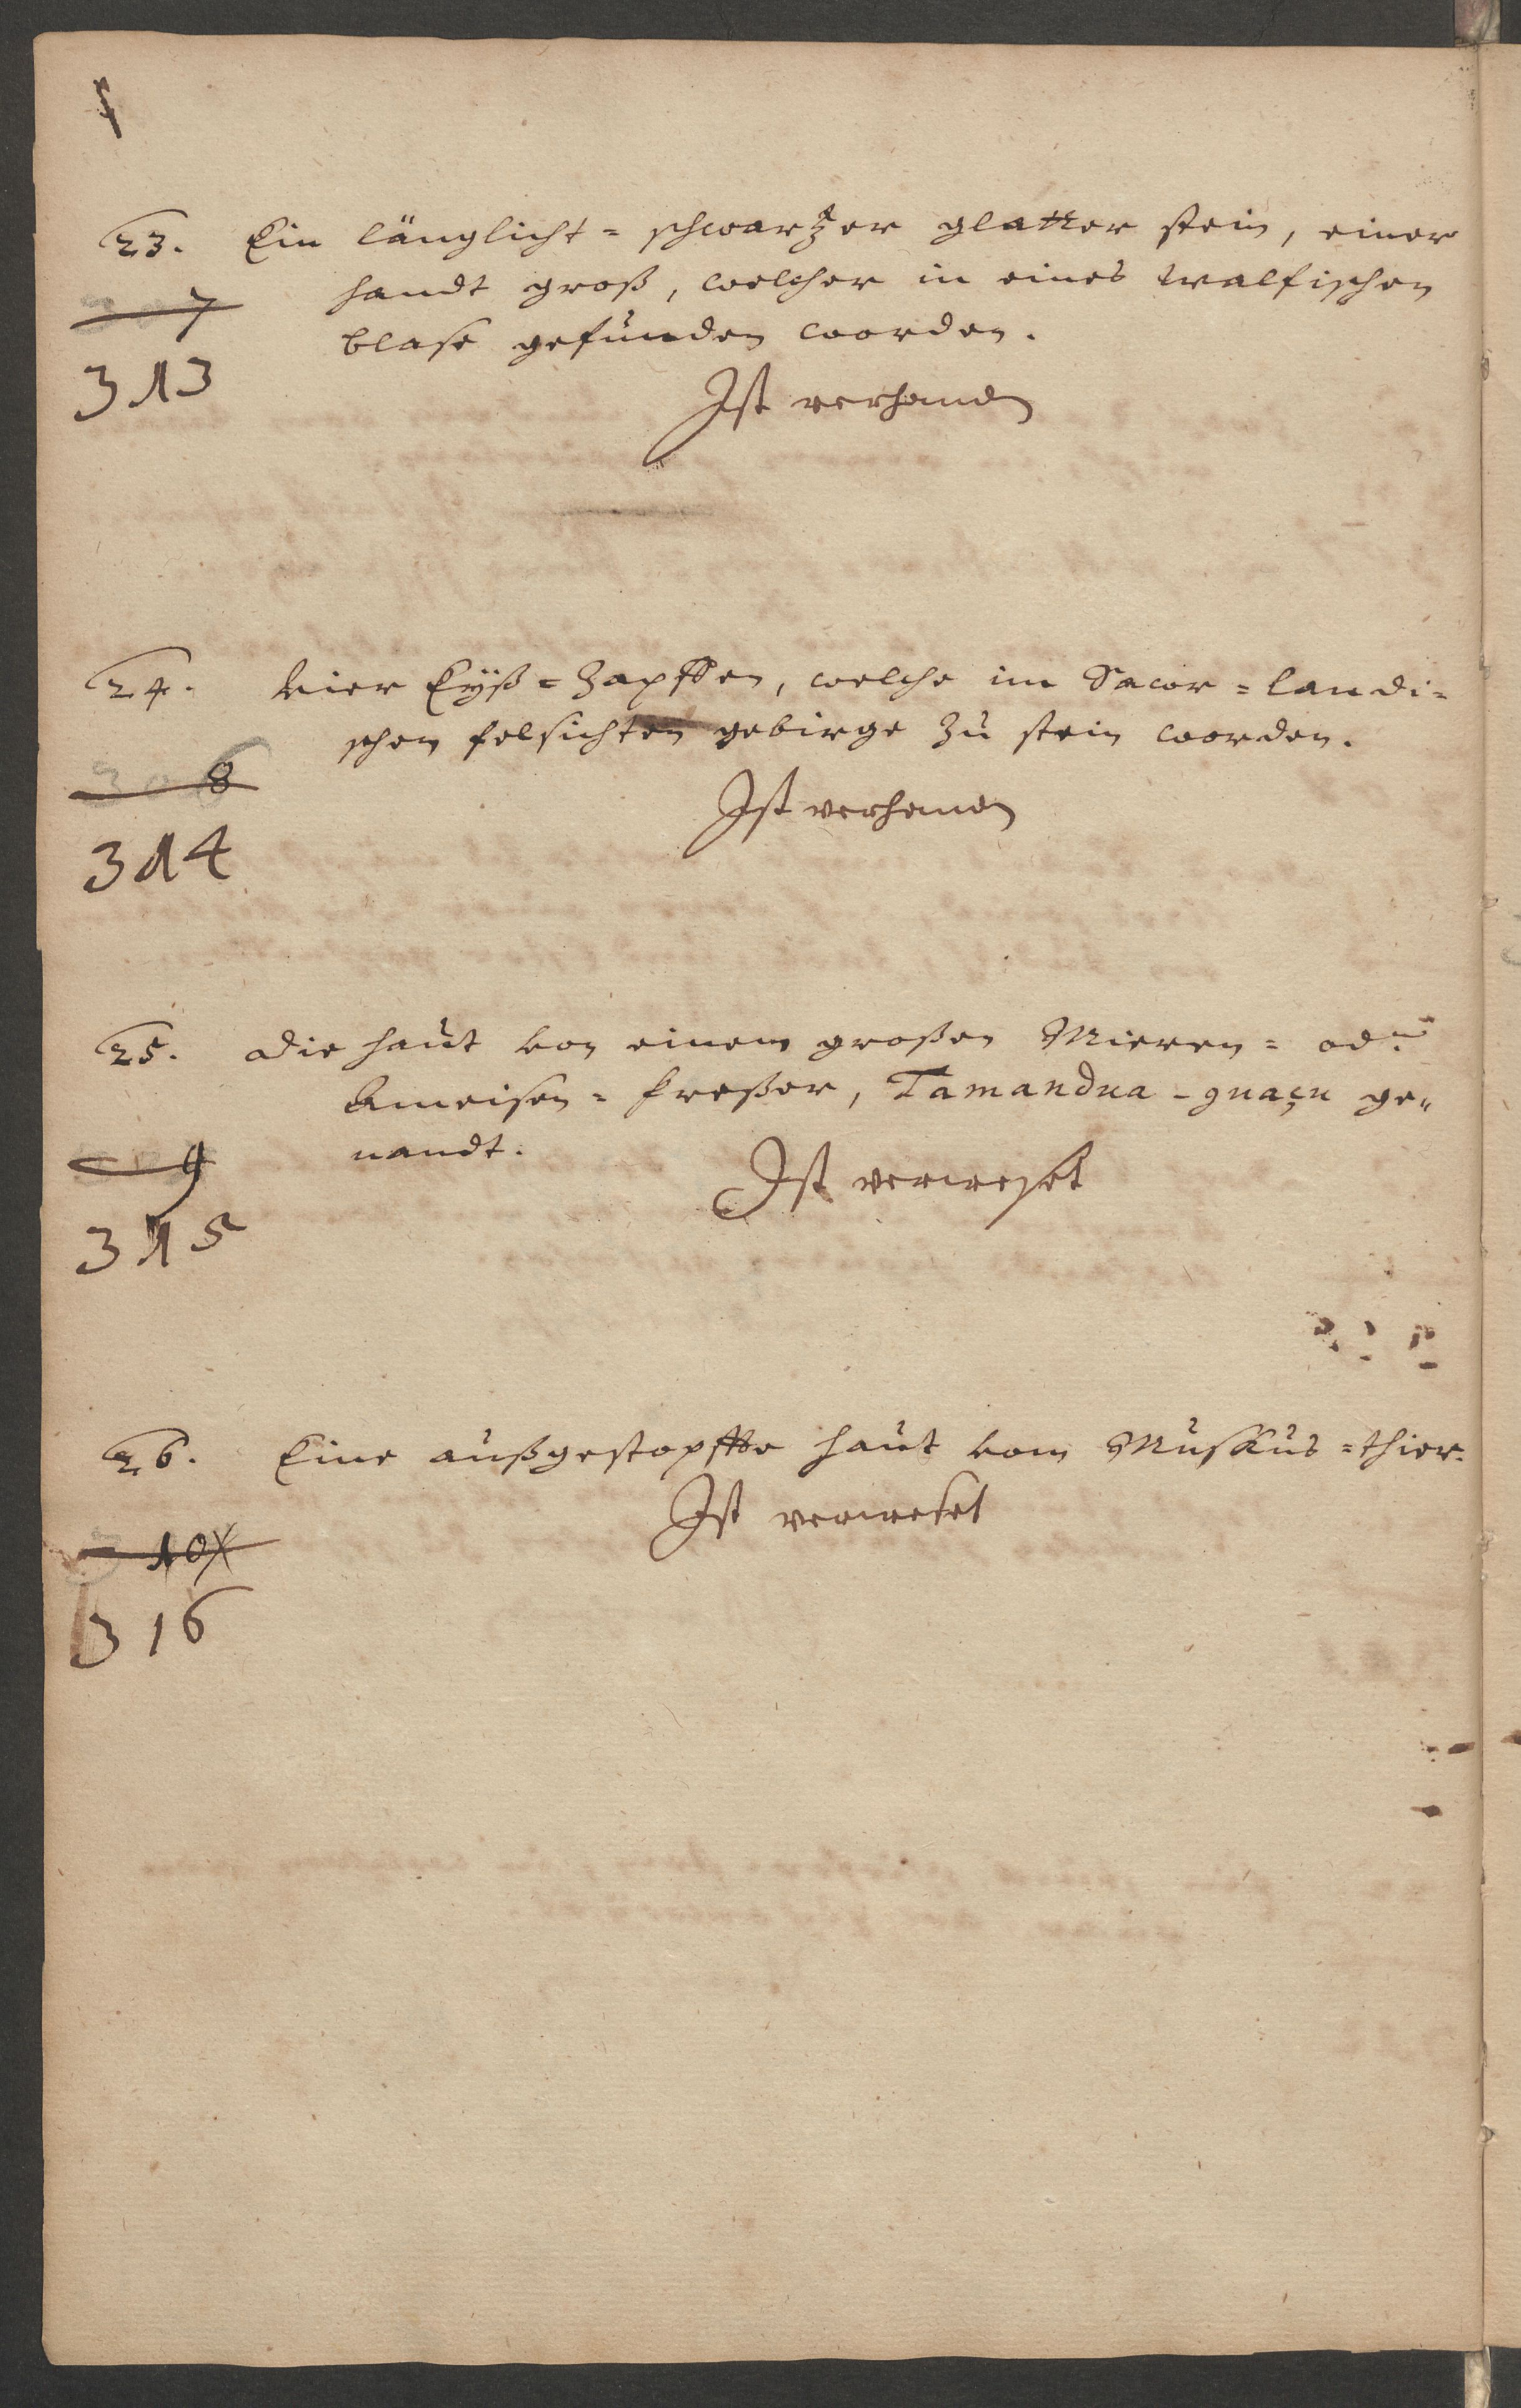 23. Ein länglicht=schwartzer glatter stein, einer
handt groß, welcher in eines walfischen
307
blase gefunden worden.
313
Ist verhanden
24. Vier Eÿß=Zapffen, welche im Sawer=landi=
schen felsichten gebirge zu stein worden.
308
Ist verhanden
314
25. Die haut von einem großen Mieren= od.
Ameisen=freßer, Tamandua-guaçu ge„
nandt.
9
Ist verweset
315
26. Eine außgestopffte haut vom Muskus=thier.
Ist verweset
310
316